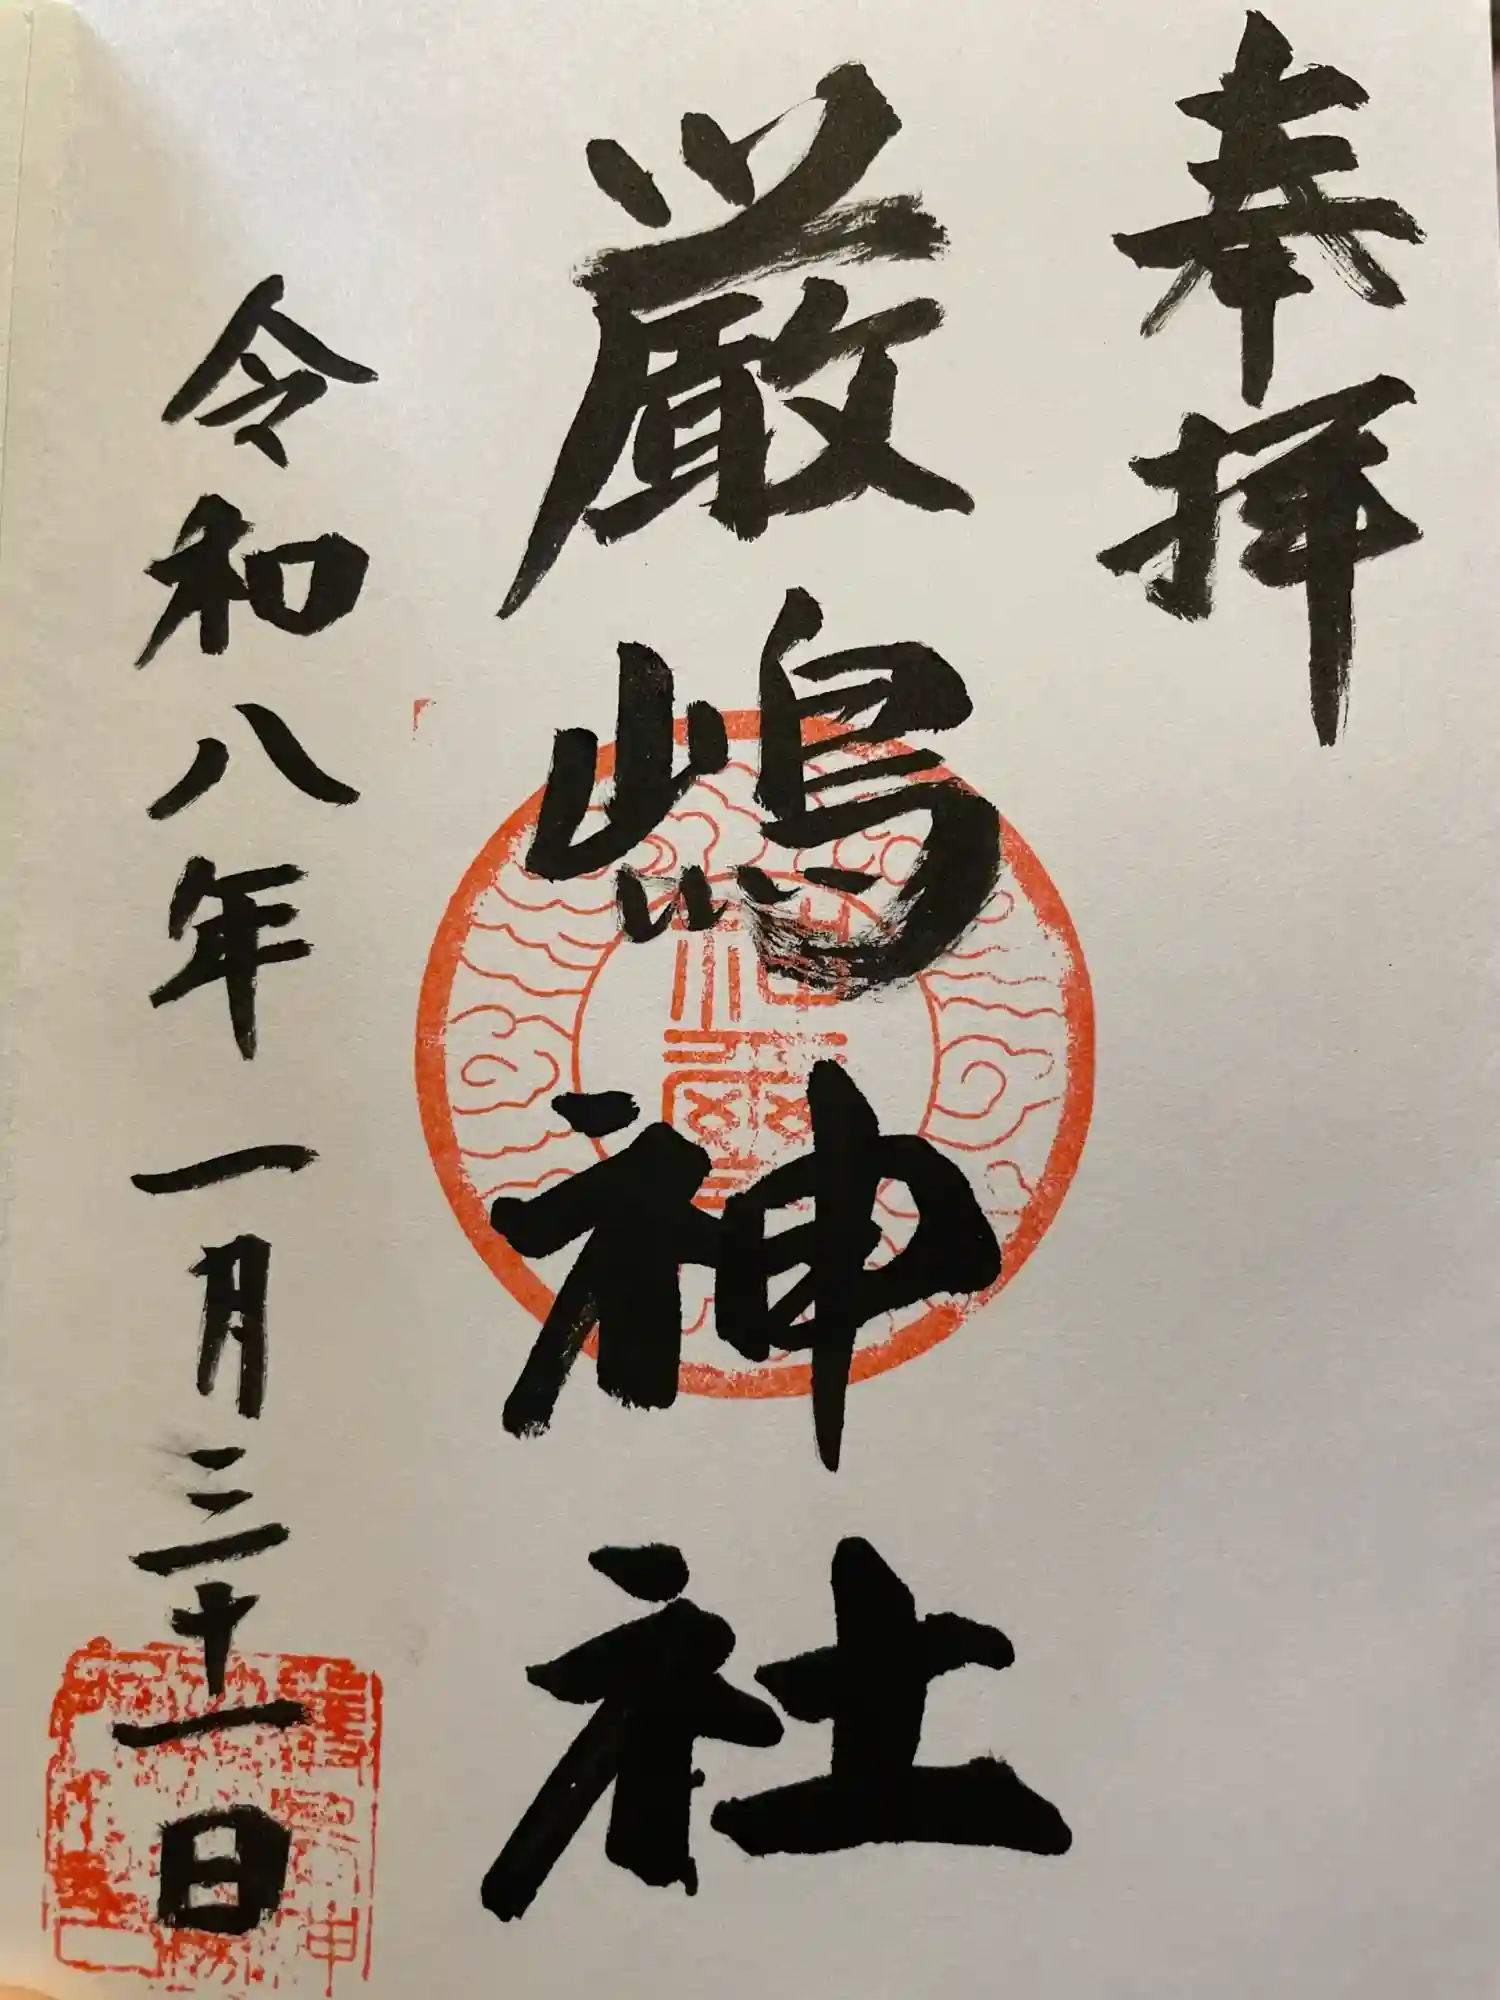 奉拝
厳嶋神社
令和八年一月三十一日